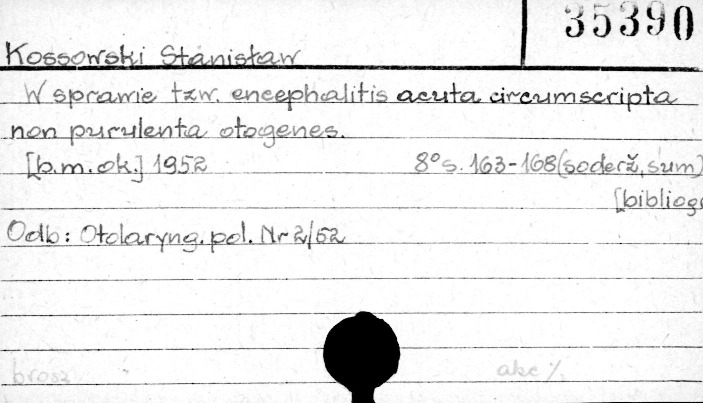 35390
Kossowski Stanisław
W sprawie tzw. encephalitis acuta circumscripta
non purulenta otogenes.
[b.m.ok.] 1952 8° s. 163-168 (soderž, sum)
[bibliogr
Odb: Otolaryng. pol. Nr 2/52
brosz akc %